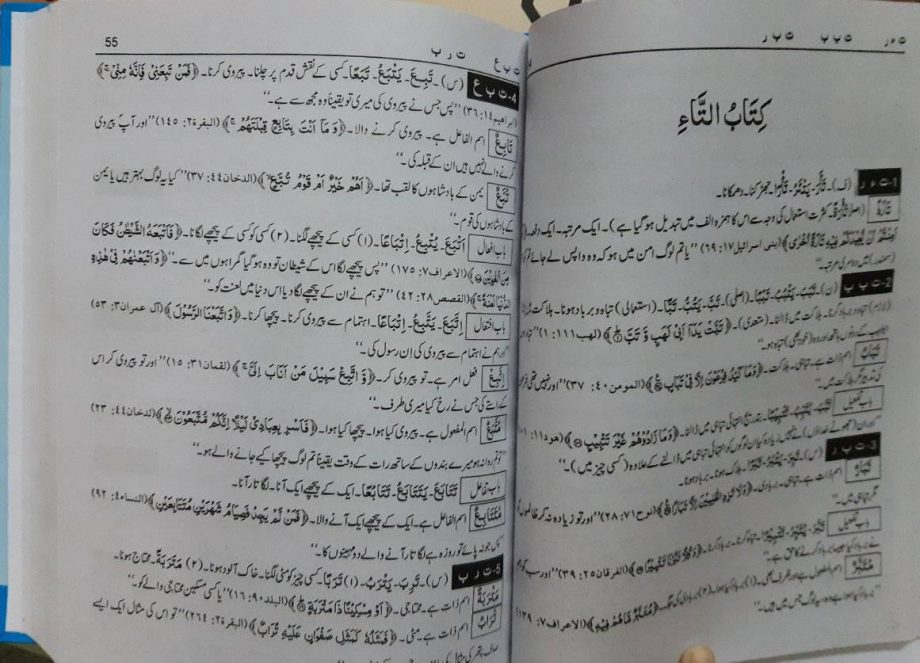 ت ء ر   ت ب ب   ت ب ر
كِتَابُ التَّاءِ
1-ت ء ر (ف)۔ تَأَرَ۔ يَتْئَرُ۔ تَأْرًا۔ جھڑکنا۔ دھمکانا۔
تَارَةً (اصلاً تَأْرَةً۔ کثرت استعمال کی وجہ سے اس کا ہمزہ الف میں تبدیل ہو گیا ہے)۔ ایک مرتبہ۔ ایک دفعہ۔
(بنی اسرائیل ۱۷: ۶۹) ”یا تم لوگ امن میں ہو کہ وہ واپس لے جائے تم کو
2-ت ب ب (ن)۔ تَبَّ۔ يَتُبُّ۔ تَبَبًا۔ (اصلی)۔ تَبَّ۔ يَتُبُّ۔ تَبًّا۔ (استعمالی) تباہ و برباد ہونا۔ ہلاکت
ہلاکت میں ڈالنا۔ (متعدی)۔ ﴿تَبَّتْ يَدَآ اَبِيْ لَهَبٍ وَّ تَبَّ﴾ (لھب ۱۱۱: ۱)
تَبَابٌ اسم ذات ہے۔ تباہی۔ ہلاکت۔ ﴿وَمَا كَيْدُ فِرْعَوْنَ اِلَّا فِيْ تَبَابٍ﴾ (المومن ۴۰: ۳۷) ”اور نہیں تھی
کی تدبیر مگر ہلاکت میں۔“
باب تفعیل تَبَّبَ۔ يُتَبِّبُ۔ تَتْبِيْبًا۔ بتدریج انتہائی تباہی میں ڈالنا۔ ﴿وَمَا زَادُوْهُمْ غَيْرَ تَتْبِيْبٍ﴾ (ھود ۱۱: ۱۰۱)
3-ت ب ر (س)۔ تَبِرَ۔ يَتْبَرُ۔ تَبَرًا۔ ہلاک ہونا۔ برباد ہونا۔
تَبَارٌ اسم ذات ہے۔ تباہی۔ بربادی۔ ﴿وَلَا تَزِدِ الظّٰلِمِيْنَ اِلَّا تَبَارًا﴾ (نوح ۷۱: ۲۸) ”اور تو زیادہ نہ کر ظالموں کو
مگر تباہی میں۔“
باب تفعیل تَبَّرَ۔ يُتَبِّرُ۔ تَتْبِيْرًا۔ تباہ کرنا۔ برباد کرنا۔ ﴿وَكُلًّا تَبَّرْنَا تَتْبِيْرًا﴾ (الفرقان ۲۵: ۳۹) ”اور سب کو
مُتَبَّرٌ اسم المفعول ہے (الاعراف ۷: ۱۳۹)
ت ب ع   ت ر ب   55
4-ت ب ع (س)۔ تَبِعَ۔ يَتْبَعُ۔ تَبَعًا۔ کسی کے نقش قدم پر چلنا۔ پیروی کرنا۔ ﴿فَمَنْ تَبِعَنِيْ فَاِنَّهٗ مِنِّيْ﴾
(ابراھیم ۱۴: ۳۶) ”پس جس نے پیروی کی میری تو یقیناً وہ مجھ سے ہے۔“
تَابِعٌ اسم الفاعل ہے۔ پیروی کرنے والا۔ ﴿وَ مَا اَنْتَ بِتَابِعٍ قِبْلَتَهُمْ﴾ (البقرة ۲: ۱۴۵) ”اور آپؐ پیروی
کرنے والے نہیں ہیں ان کے قبلہ کی۔“
تُبَّعٌ یمن کے بادشاہوں کا لقب تھا۔ ﴿اَهُمْ خَيْرٌ اَمْ قَوْمُ تُبَّعٍ﴾ (الدخان ۴۴: ۳۷) ”کیا یہ لوگ بہتر ہیں یا یمن
کے بادشاہوں کی قوم۔“
باب افعال اَتْبَعَ۔ يُتْبِعُ۔ اِتْبَاعًا۔ (۱) کسی کے پیچھے لگنا۔ (۲) کسی کو کسی کے پیچھے لگانا۔ ﴿فَاَتْبَعَهُ الشَّيْطٰنُ فَكَانَ
مِنَ الْغٰوِيْنَ﴾ (الاعراف ۷: ۱۷۵) ”پس پیچھے لگا اس کے شیطان تو وہ ہو گیا گمراہوں میں سے۔“ ﴿وَاَتْبَعْنٰهُمْ فِيْ هٰذِهِ
الدُّنْيَا لَعْنَةً﴾ (القصص ۲۸: ۴۲) ”تو ہم نے ان کے پیچھے لگا دیا اس دنیا میں لعنت کو۔“
باب افتعال اِتَّبَعَ۔ يَتَّبِعُ۔ اِتِّبَاعًا۔ اہتمام سے پیروی کرنا۔ پیچھا کرنا۔ ﴿وَاتَّبَعْنَا الرَّسُوْلَ﴾ (آل عمران ۳: ۵۳)
”اور ہم نے اہتمام سے پیروی کی اِن رسول کی۔“
اِتَّبِعْ فعل امر ہے۔ تو پیروی کر۔ ﴿وَّ اتَّبِعْ سَبِيْلَ مَنْ اَنَابَ اِلَيَّ﴾ (لقمان ۳۱: ۱۵) ”اور تو پیروی کر اس
کے راستے کی جس نے رخ کیا میری طرف۔“
مُتَّبَعٌ اسم المفعول ہے۔ پیروی کیا ہوا۔ پیچھا کیا ہوا۔ ﴿فَاَسْرِ بِعِبَادِيْ لَيْلًا اِنَّكُمْ مُّتَّبَعُوْنَ﴾ (الدخان ۴۴: ۲۳)
روانہ ہو میرے بندوں کے ساتھ رات کے وقت یقیناً تم لوگ پیچھا کیے جانے والے ہو۔“
باب تفاعل تَتَابَعَ۔ يَتَتَابَعُ۔ تَتَابُعًا۔ ایک کے پیچھے ایک آنا۔ لگاتار آنا۔
مُتَتَابِعٌ اسم الفاعل ہے۔ ایک کے پیچھے ایک آنے والا۔ ﴿فَمَنْ لَّمْ يَجِدْ فَصِيَامُ شَهْرَيْنِ مُتَتَابِعَيْنِ﴾ (النساء ۴: ۹۲)
”پس جو نہ پائے تو روزہ ہے لگاتار آنے والے دو مہینوں کا۔“
5-ت ر ب (س)۔ تَرِبَ۔ يَتْرَبُ۔ (۱) تَرَبًا۔ کسی چیز کو مٹی لگنا۔ خاک آلود ہونا۔ (۲) مَتْرَبَةً۔ محتاج ہونا۔
مَتْرَبَةٌ اسم ذات ہے۔ محتاجی۔ ﴿اَوْ مِسْكِيْنًا ذَا مَتْرَبَةٍ﴾ (البلد ۹۰: ۱۶) ”یا کسی مسکین محتاجی والے کو۔“
تُرَابٌ اسم ذات ہے۔ مٹی۔ ﴿فَمَثَلُهٗ كَمَثَلِ صَفْوَانٍ عَلَيْهِ تُرَابٌ﴾ (البقرة ۲: ۲۶۴) ”تو اس کی مثال ایک ایسے